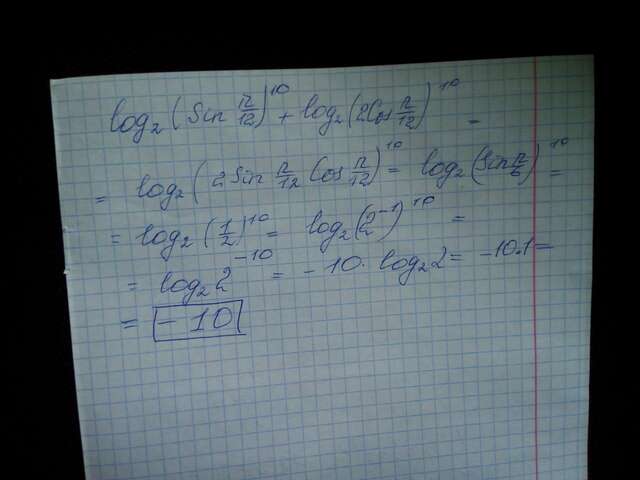 log₂(Sin π/12)¹⁰ + log₂(2Cos π/12)¹⁰ =
= log₂(2Sin π/12 Cos π/12)¹⁰ = log₂(Sin π/6)¹⁰ =
= log₂(1/2)¹⁰ = log₂(2⁻¹)¹⁰ =
= log₂2⁻¹⁰ = -10·log₂2 = -10·1 =
= -10